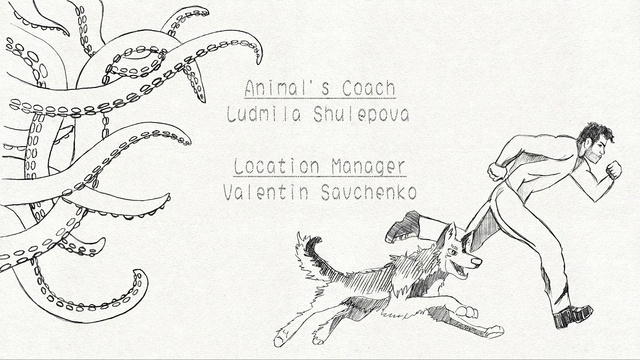 Animal's Coach
Ludmila Shulepova
Location Manager
Valentin Savchenko